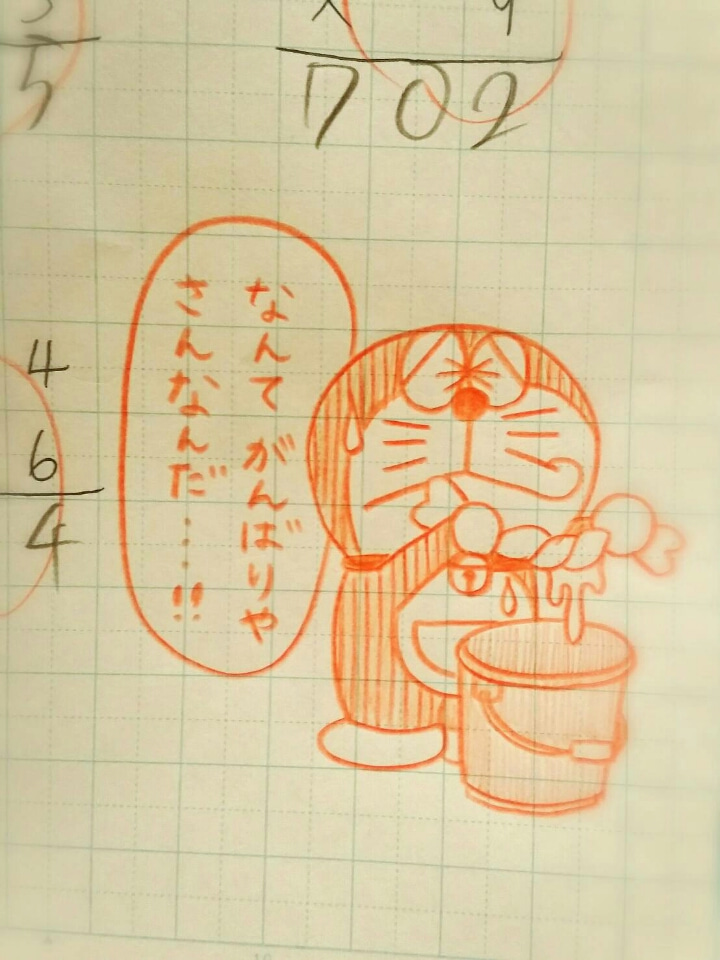 5
702
なんて がんばりや
さんなんだ…!!
4
6
4